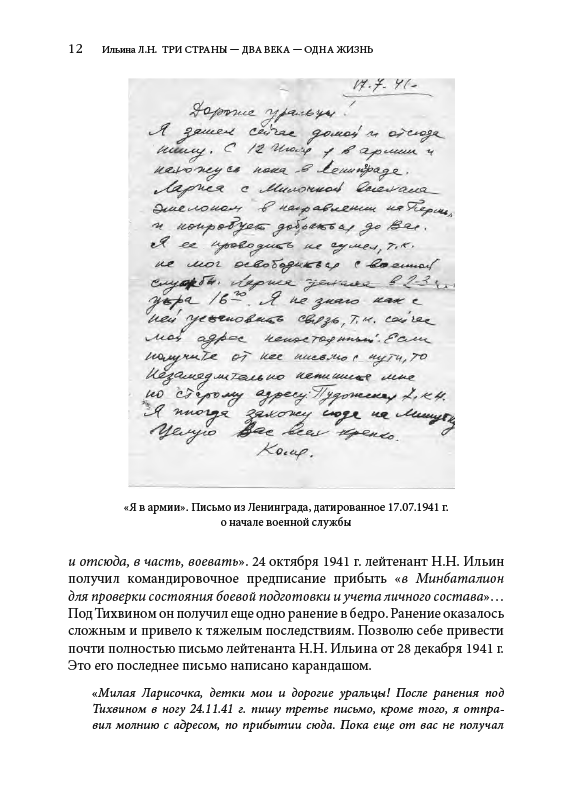 12 Ильина Л.Н. ТРИ СТРАНЫ — ДВА ВЕКА — ОДНА ЖИЗНЬ
17.7.41г.
Дорогие уральцы!
Я зашел сейчас домой и отсюда
пишу. С 12 Июля я в армии и
нахожусь пока в Ленинграде.
Лариса с Милочкой выехала
эшелоном в направлении на Пермь,
и попробует добраться до Вас.
Я ее проводить не сумел, т.к.
не мог освободиться с военной
службы. Лариса уехала в 2-3
утра 16го. Я не знаю как с
ней установить связь, т.к. сейчас
мой адрес непостоянный. Если
получите от нее письмо с пути, то
Незамедлительно напишите мне
по старому адресу: Пудожская
Я иногда захожу сюда на Минутку
Целую Вас всех крепко.
Коля.
«Я в армии». Письмо из Ленинграда, датированное 17.07.1941 г.
о начале военной службы
и отсюда, в часть, воевать». 24 октября 1941 г. лейтенант Н.Н. Ильин
получил командировочное предписание прибыть «в Минбаталион
для проверки состояния боевой подготовки и учета личного состава»…
Под Тихвином он получил еще одно ранение в бедро. Ранение оказалось
сложным и привело к тяжелым последствиям. Позволю себе привести
почти полностью письмо лейтенанта Н.Н. Ильина от 28 декабря 1941 г.
Это его последнее письмо написано карандашом.
«Милая Ларисочка, детки мои и дорогие уральцы! После ранения под
Тихвином в ногу 24.11.41 г. пишу третье письмо, кроме того, я отпра-
вил молнию с адресом, по прибытии сюда. Пока еще от вас не получал